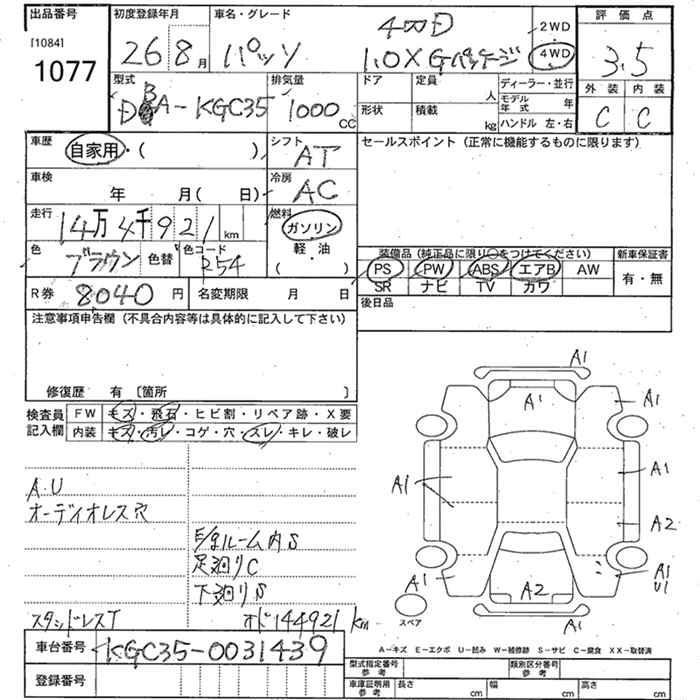 出品番号 初度登録年月 車名・グレード 評価点
[1084] 1077 26 8月 パッソ 4WD 1.0X Gパッケージ 2WD 4WD 3.5
型式 排気量 ドア 定員 人 ディーラー・並行 外装 内装
DBA-KGC35 1000cc 形状 積載 kg モデル年式 年 ハンドル 左・右 C C
車歴 自家用・( ) シフト AT セールスポイント（正常に機能するものに限ります）
車検 年 月( 日) 冷房 AC
走行 14万4千921km 燃料 ガソリン
軽・油
( )
色 ブラウン 色替 色コード R54
装備品（純正品に限り○をつけてください） 新車保証書
PS PW ABS エアB AW 有・無
SR ナビ TV カワ
R券 8040円 名変期限 月 日 後日品
注意事項申告欄（不具合内容等は具体的に記入して下さい）
修復歴 有［箇所 ］
検査員記入欄 FW キズ・飛石・ヒビ割・リペア跡・X要
内装 キズ・汚レ・コゲ・穴・スレ・キレ・破レ
A1
A1
A1
A1
A1
A2
A1
A2
A1
U1
A1
A.U
オーディオレス穴
E/gルーム内S
足廻りC
下廻りS
スタッドレスT オド144921km
スペア
A－キズ E－エクボ U－凹み W－補修跡 S－サビ C－腐食 XX－取替済
車台番号 KGC35-0031439
登録番号
型式指定番号 参考 類別区分番号 参考
車庫証明用 参考 長さ cm 幅 cm 高さ cm